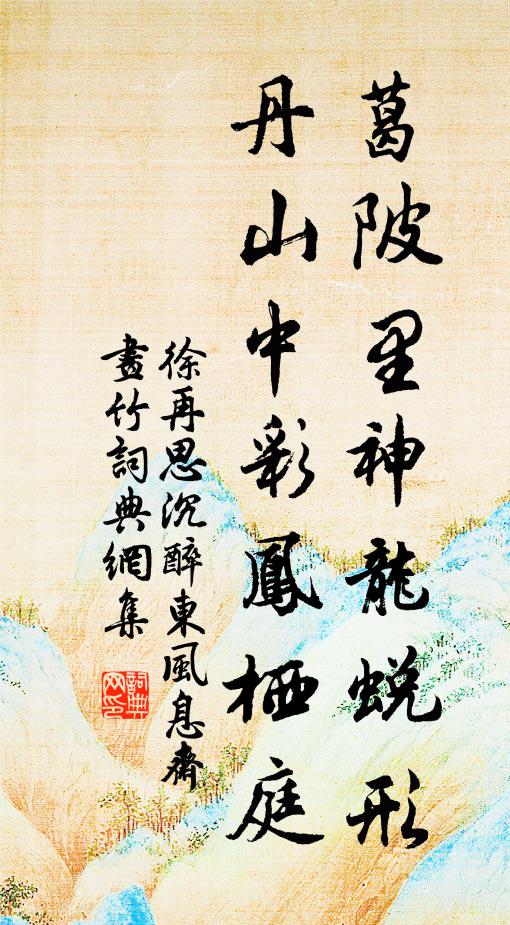 葛陂里神龍蛻形
丹山中彩鳳栖庭
徐再思沉醉東風息齋
畫竹詞典網集
詞典
网印